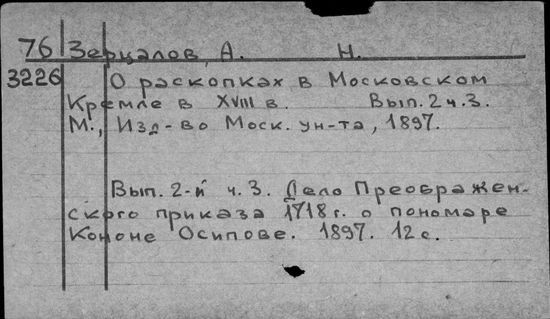 76 Зерцалов, А. Н.
3226 О раскопках в Московском
Кремле в XVIII в. Вып. 2 ч. 3.
М., Изд-во Моск. ун-та, 1897.
Вып. 2-й ч. 3. Дело Преображен-
ского приказа 1718 г. о пономаре
Кононе Осипове. 1897. 12 с.